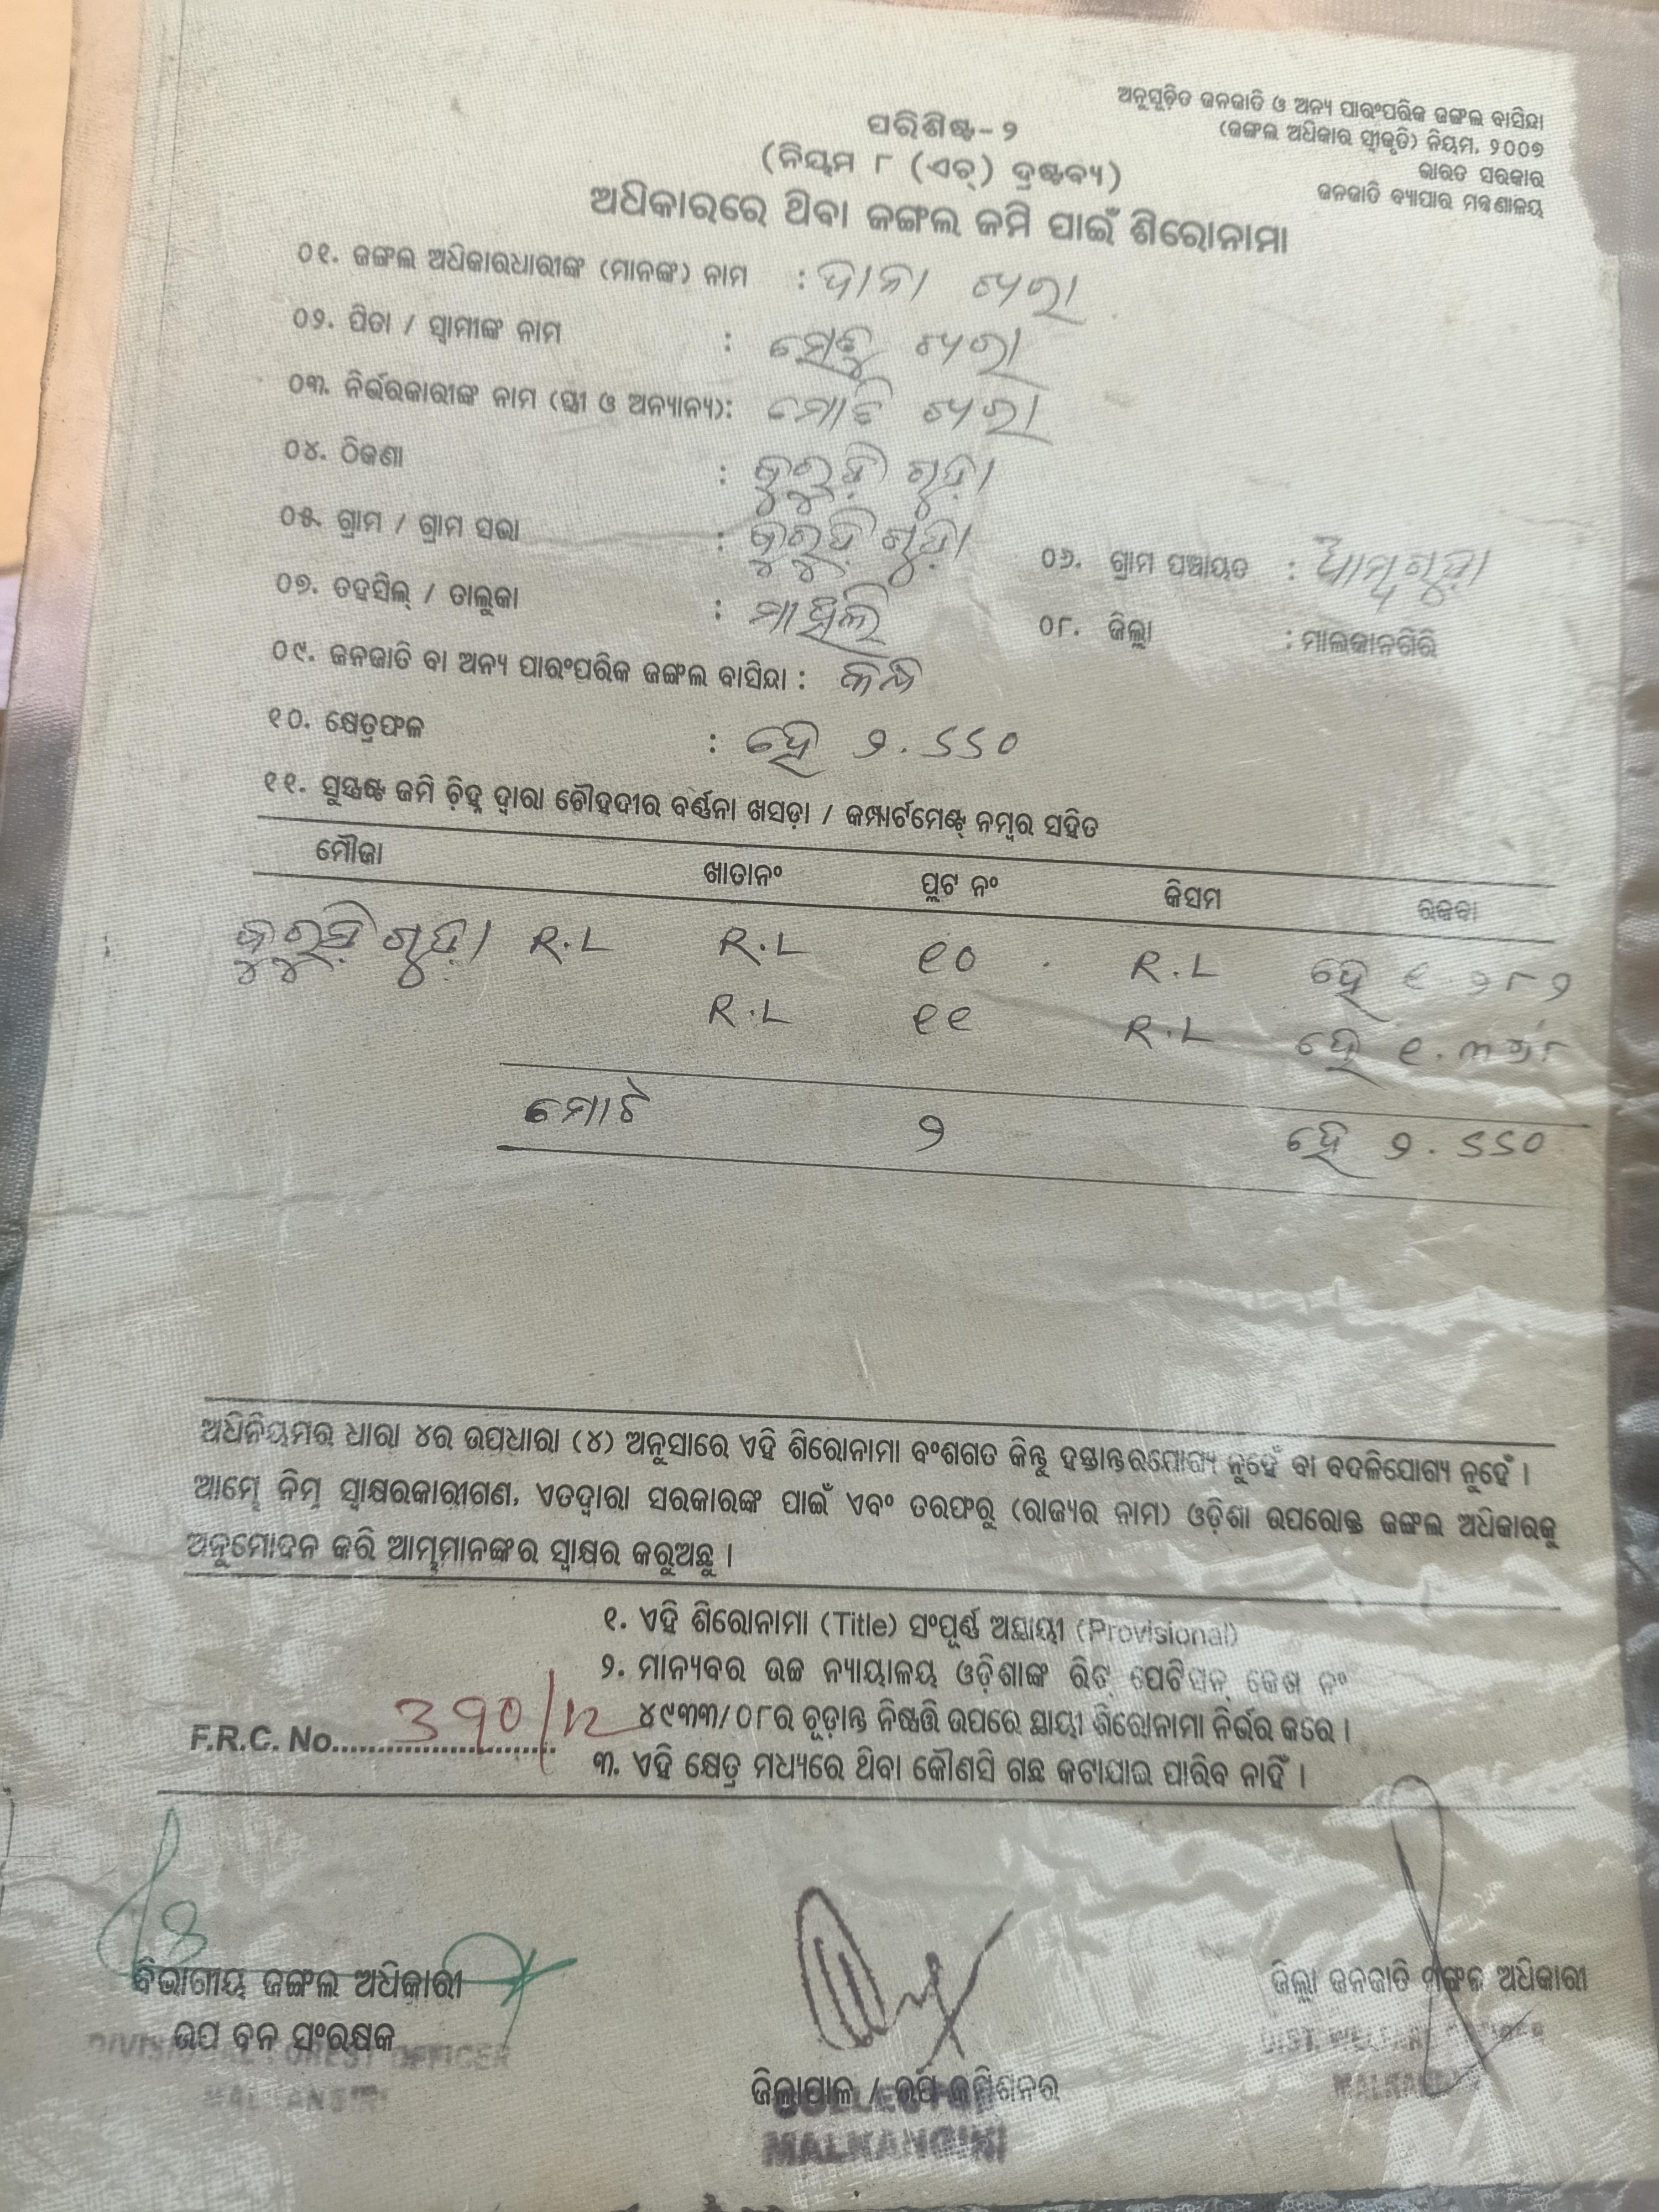 ଅନୁସୂଚିତ ଜନଜାତି ଓ ଅନ୍ୟ ପାରଂପରିକ ଜଙ୍ଗଲ ବାସିନ୍ଦା
(ଜଙ୍ଗଲ ଅଧିକାର ସ୍ୱୀକୃତି) ନିୟମ, ୨୦୦୭
ଭାରତ ସରକାର
ଜନଜାତି ବ୍ୟାପାର ମନ୍ତ୍ରଣାଳୟ
ପରିଶିଷ୍ଟ-୨
(ନିୟମ ୮ (ଏଚ୍) ଦ୍ରଷ୍ଟବ୍ୟ)
ଅଧିକାରରେ ଥିବା ଜଙ୍ଗଲ ଜମି ପାଇଁ ଶିରୋନାମା
୦୧. ଜଙ୍ଗଲ ଅଧିକାରଧାରୀଙ୍କ (ମାନଙ୍କ) ନାମ :
୦୨. ପିତା / ସ୍ୱାମୀଙ୍କ ନାମ :
୦୩. ନିର୍ଭରକାରୀଙ୍କ ନାମ (ସ୍ତ୍ରୀ ଓ ଅନ୍ୟାନ୍ୟ):
୦୪. ଠିକଣା : ଗୁଡ଼ା
୦୫. ଗ୍ରାମ / ଗ୍ରାମ ସଭା : ଗୁଡ଼ା ୦୬. ଗ୍ରାମ ପଞ୍ଚାୟତ : ଆମ୍ବଗୁଡ଼ା
୦୭. ତହସିଲ୍ / ତାଲୁକା : ମାଥିଲି ୦୮. ଜିଲ୍ଲା : ମାଲକାନଗିରି
୦୯. ଜନଜାତି ବା ଅନ୍ୟ ପାରଂପରିକ ଜଙ୍ଗଲ ବାସିନ୍ଦା : କନ୍ଧ
୧୦. କ୍ଷେତ୍ରଫଳ : ହେ ୨.୫୫୦
୧୧. ସୁସ୍ପଷ୍ଟ ଜମି ଚିହ୍ନ ଦ୍ୱାରା ଚୌହଦୀର ବର୍ଣ୍ଣନା ଖସଡ଼ା / କମ୍ପାର୍ଟମେଣ୍ଟ୍ ନମ୍ବର ସହିତ
ମୌଜା ଖାତାନଂ ପ୍ଲଟ ନଂ କିସମ ରକବା
ଗୁଡ଼ା R.L R.L ୧୦ R.L ହେ ୧.୨୮୨
R.L ୧୧ R.L ହେ
ମୋଟ ୨ ହେ ୨.୫୫୦
ଅଧିନିୟମର ଧାରା ୪ର ଉପଧାରା (୪) ଅନୁସାରେ ଏହି ଶିରୋନାମା ବଂଶଗତ କିନ୍ତୁ ହସ୍ତାନ୍ତରଯୋଗ୍ୟ ନୁହେଁ ବା ବଦଳିଯୋଗ୍ୟ ନୁହେଁ ।
ଆମ୍ଭେ ନିମ୍ନ ସ୍ୱାକ୍ଷରକାରୀଗଣ, ଏତଦ୍ୱାରା ସରକାରଙ୍କ ପାଇଁ ଏବଂ ତରଫରୁ (ରାଜ୍ୟର ନାମ) ଓଡ଼ିଶା ଉପରୋକ୍ତ ଜଙ୍ଗଲ ଅଧିକାରକୁ
ଅନୁମୋଦନ କରି ଆମ୍ଭମାନଙ୍କର ସ୍ୱାକ୍ଷର କରୁଅଛୁ ।
୧. ଏହି ଶିରୋନାମା (Title) ସଂପୂର୍ଣ୍ଣ ଅସ୍ଥାୟୀ (Provisional)
୨. ମାନ୍ୟବର ଉଚ୍ଚ ନ୍ୟାୟାଳୟ ଓଡ଼ିଶାଙ୍କ ରିଟ୍ ପେଟିସନ୍ କେଶ ନଂ
୪୯୩୩/୦୮ର ଚୂଡ଼ାନ୍ତ ନିଷ୍ପତ୍ତି ଉପରେ ସ୍ଥାୟୀ ଶିରୋନାମା ନିର୍ଭର କରେ ।
F.R.C. No. 390/12
୩. ଏହି କ୍ଷେତ୍ର ମଧ୍ୟରେ ଥିବା କୌଣସି ଗଛ କଟାଯାଇ ପାରିବ ନାହିଁ ।
ବିଭାଗୀୟ ଜଙ୍ଗଲ ଅଧିକାରୀ
ଉପ ବନ ସଂରକ୍ଷକ
DIVISIONAL FOREST OFFICER
MALKANGIRI
ଜିଲ୍ଲାପାଳ / ଉପ କମିଶନର
COLLECTOR
MALKANGIRI
ଜିଲ୍ଲା ଜନଜାତି ମଙ୍ଗଳ ଅଧିକାରୀ
DIST. WELFARE OFFICER
MALKANGIRI